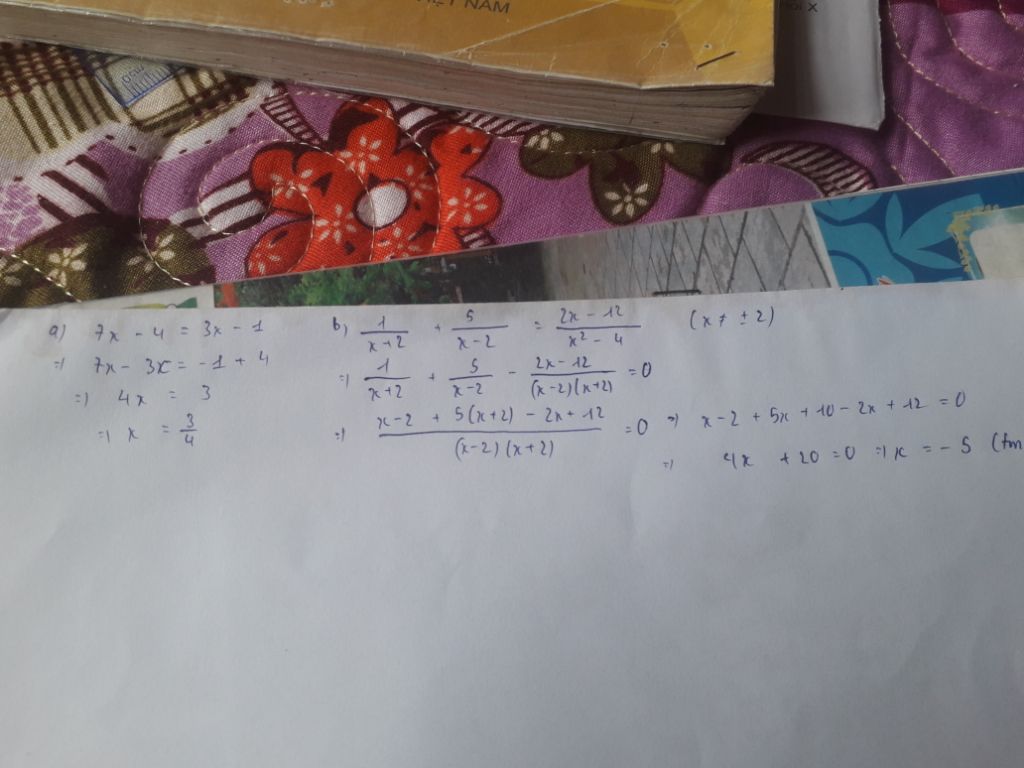 VIỆT NAM
a) 7x - 4 = 3x - 1
=) 7x - 3x = -1 + 4
=) 4x = 3
=) x = 3/4
b) 1/(x+2) + 5/(x-2) = (2x - 12)/(x² - 4) (x ≠ ±2)
=) 1/(x+2) + 5/(x-2) - (2x-12)/((x-2)(x+2)) = 0
=) (x-2 + 5(x+2) - 2x + 12)/((x-2)(x+2)) = 0 => x - 2 + 5x + 10 - 2x + 12 = 0
=) 4x + 20 = 0 =) x = -5 (tm